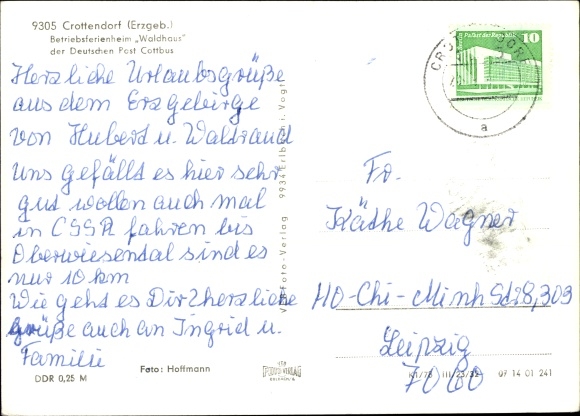 9305 Crottendorf (Erzgeb.)
Betriebsferienheim „Waldhaus"
der Deutschen Post Cottbus
Herzliche Urlaubsgrüße
aus dem Erzgebirge
von Hubert u. Waltraud
Uns gefällt es hier sehr
gut wollen auch mal
in CSSR fahren bis
Oberwiesental sind es
nur 10 km
Wie geht es Dir? herzliche
grüße auch an Ingrid u.
Familie
Foto: Hoffmann
DDR 0,25 M
9934 Erlbach i. Vogtl
Foto-Verlag
Palast der Republik
10
a
Fr.
Käthe Wagner
HO-Chi-Minh Str 28, 303
Leipzig
7060
III 23/32 07 14 01 241